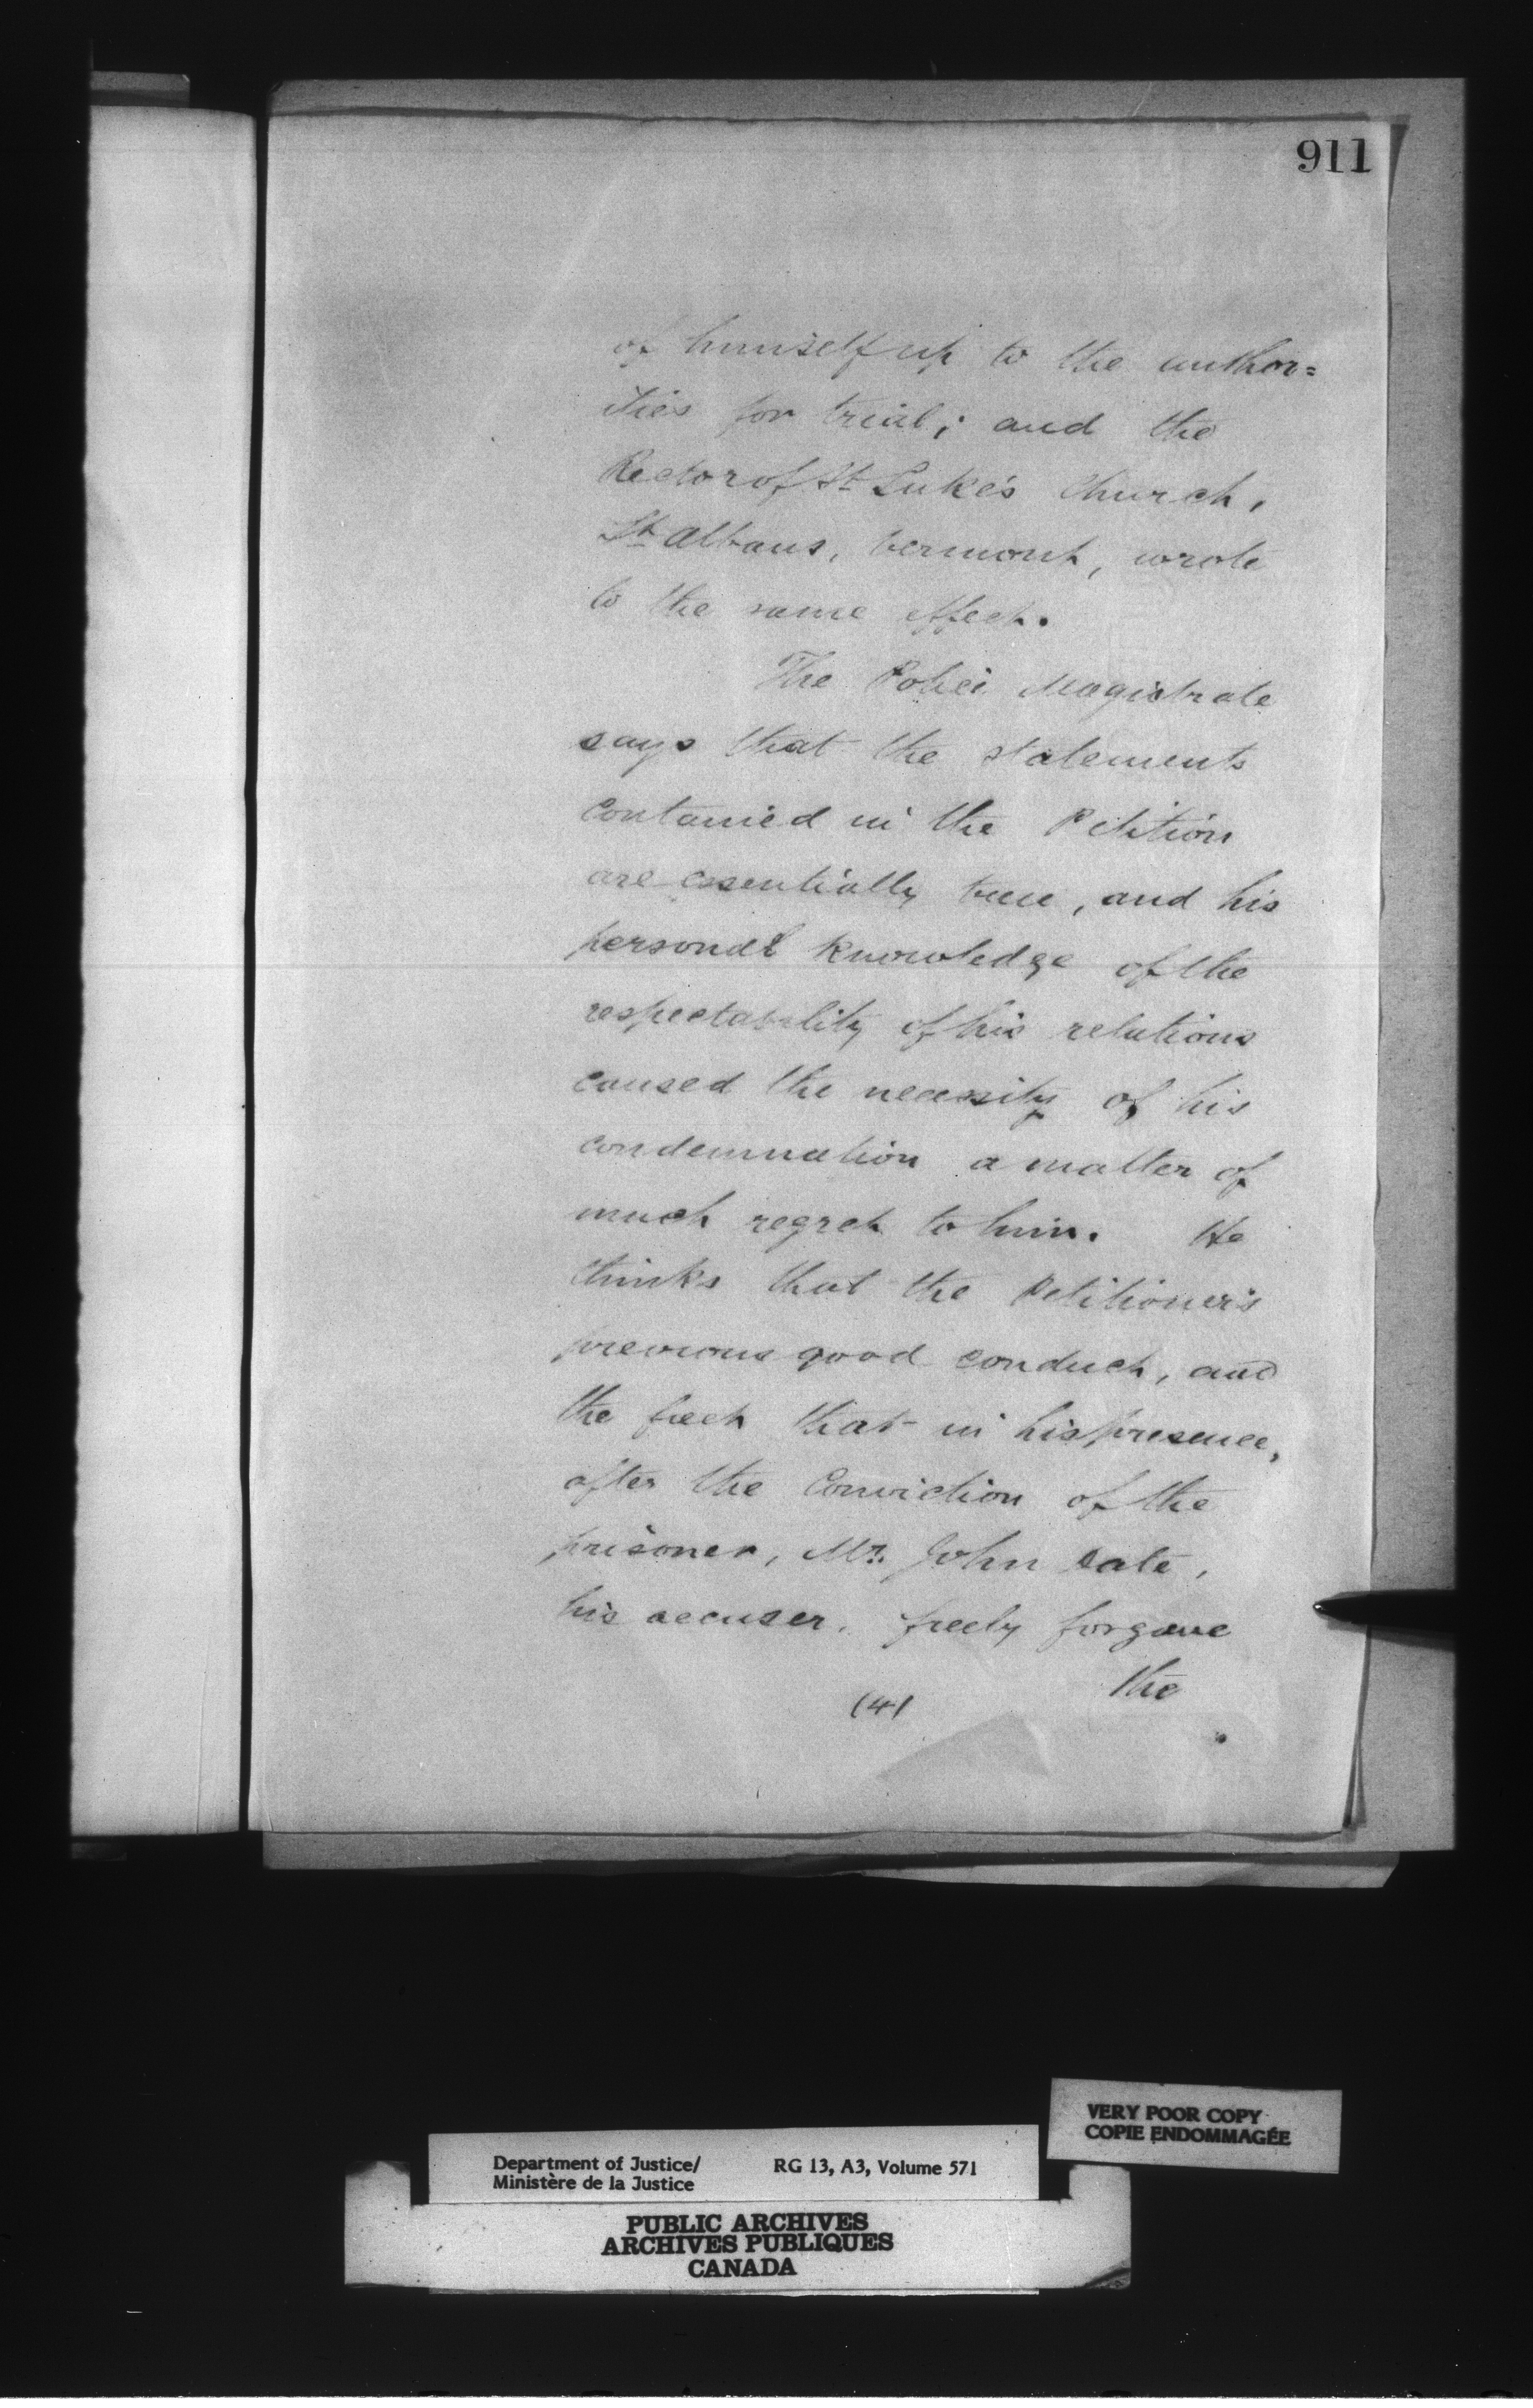 911
of himself up to the author=
ities for trial; and the
Rector of St Luke's Church,
St Albans, Vermont, wrote
to the same effect.
The Police Magistrate
says that the statements
contained in the Petition
are essentially true, and his
personal knowledge of the
respectability of his relations
caused the necessity of his
condemnation a matter of
much regret to him. He
thinks that the Petitioner's
previous good conduct, and
the fact that in his presence,
after the Conviction of the
prisoner, Mr. John Date,
his accuser, freely forgave
the
(4)
VERY POOR COPY
COPIE ENDOMMAGÉE
Department of Justice/ RG 13, A3, Volume 571
Ministère de la Justice
PUBLIC ARCHIVES
ARCHIVES PUBLIQUES
CANADA